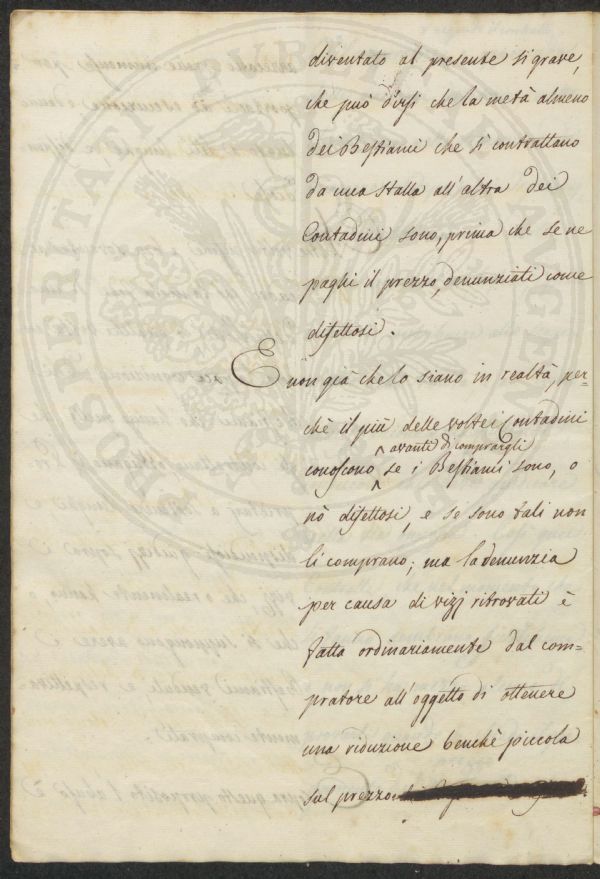 diventato al presente sì grave,
che può dirsi che la metà almeno
dei Bestiami che si contrattano
da una stalla all'altra dei
Contadini sono, prima che se ne
paghi il prezzo, denunziati come
difettosi.
E non già che lo siano in realtà, per-
chè il più delle volte i Contadini
avanti di comprargli
conoscono se i Bestiami sono, o
nò difettosi, e se sono tali non
li comprano; ma la denunzia
per causa di vizj ritrovati è
fatta ordinariamente dal com=
pratore all'oggetto di ottenere
una riduzione benchè piccola
sul prezzo